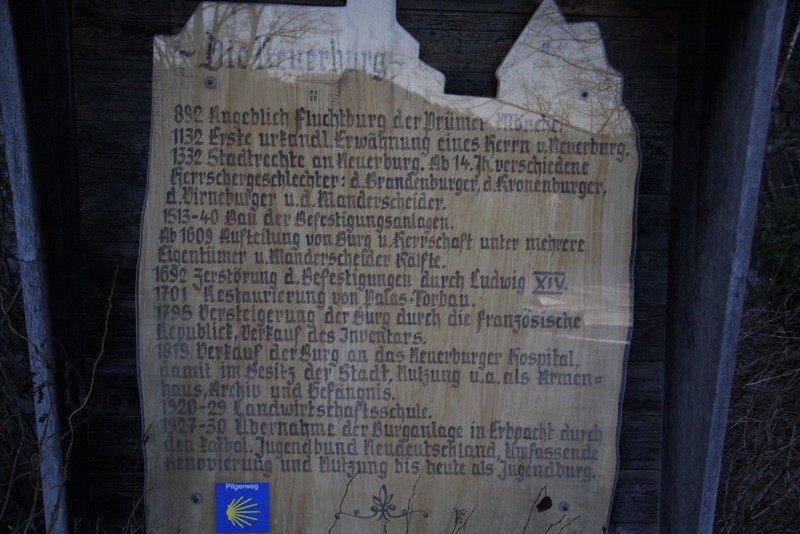 ~ Die Neuerburg ~
892 Angeblich Fluchtburg der Prümer Mönche.
1132 Erste urkandl. Erwähnung eines Herrn v. Neuerburg.
1332 Stadtrechte an Neuerburg. Ab 14. Jh. verschiedene
Herrschergeschlechter: d. Brandenburger, d. Kronenburger,
d. Virneburger u. d. Manderscheider.
1513-40 Bau der Befestigungsanlagen.
Ab 1609 Aufteilung von Burg u. Herrschaft unter mehrere
Eigentümer u. Manderscheider Hälfte.
1692 Zerstörung d. Befestigungen durch Ludwig XIV.
1701 Restaurierung von Palas-Torbau.
1795 Versteigerung der Burg durch die französische
Republick, Verkauf des Inventars.
1819 Verkauf der Burg an das Neuerburger Hospital,
damit im Besitz der Stadt, Nutzung u.a. als Armen=
haus, Archiv und Gefängnis.
1920-29 Landwirtschaftsschule.
1927-30 Übernahme der Burganlage in Erbpacht durch
den kathol. Jugendbund Neudeutschland, Umfassende
Renovierung und Nutzung bis heute als Jugendburg.
Pilgerweg